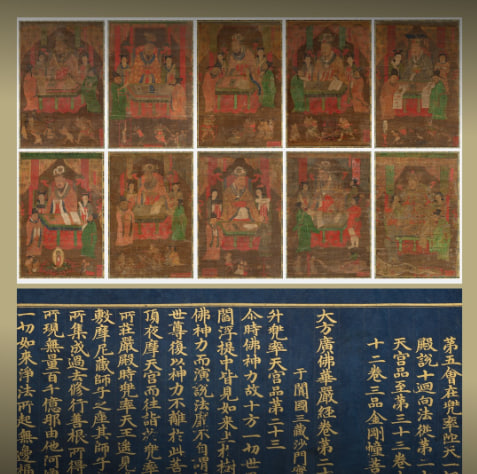 第五會在兜率陀天
殿說十迴向法從第
天宮品至第三十三卷
十二卷三品金剛幢
大方廣佛華嚴經卷第二
于闐國三藏沙門實
升兜率天宮品第二十三
尒時佛神力故十方一切世
閻浮提中皆見如來坐於樹
佛神力而演說法靡不自謂
世尊復以神力不離於此菩
頂夜摩天宮而往詣於兜率
所莊嚴殿時兜率天王遙見
敷摩尼藏師子之座其師子
所集成過去修行善根所得
所現無量百千億那由他阿
一切如來淨法所起無邊福